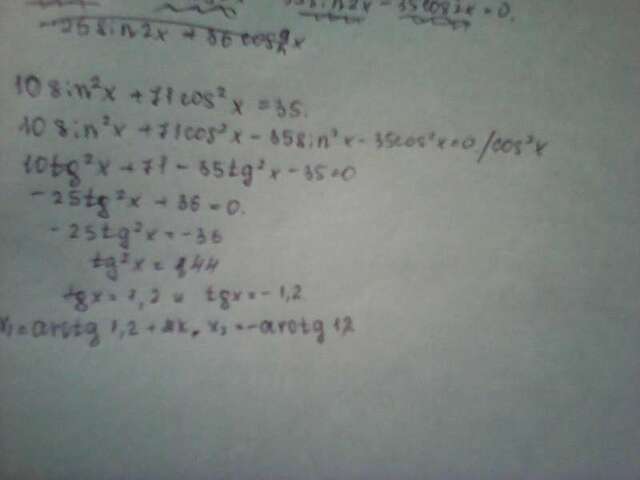 35cos2x = 0.
-25sin2x + 36cos²x
10 sin²x + 71cos²x = 35.
10 sin²x + 71cos²x - 35sin²x - 35cos²x = 0 /cos²x
10tg²x + 71 - 35tg²x - 35 = 0
-25tg²x + 36 = 0.
-25tg²x = -36
tg²x = 1,44
tgx = 1,2 и tgx = -1,2
x₁ = arctg 1,2 + πk, x₂ = -arctg 1,2